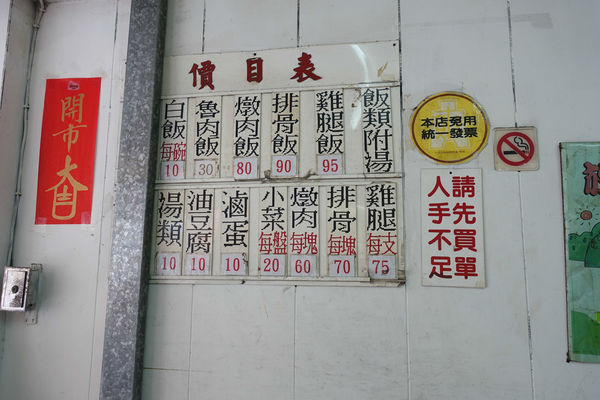 開市大吉
價目表
白飯 每碗 10
魯肉飯 30
燉肉飯 80
排骨飯 90
雞腿飯 95
飯類附湯
湯類 10
油豆腐 10
滷蛋 10
小菜 每盤 20
燉肉 每塊 60
排骨 每塊 70
雞腿 每支 75
本店免用
統一發票
請先買單
人手不足